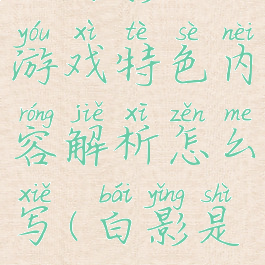 yóu xì tè sè nèi
游戏特色内
róng jiě xī zěn me
容解析怎么
xiě bái yǐng shì
写(白影是